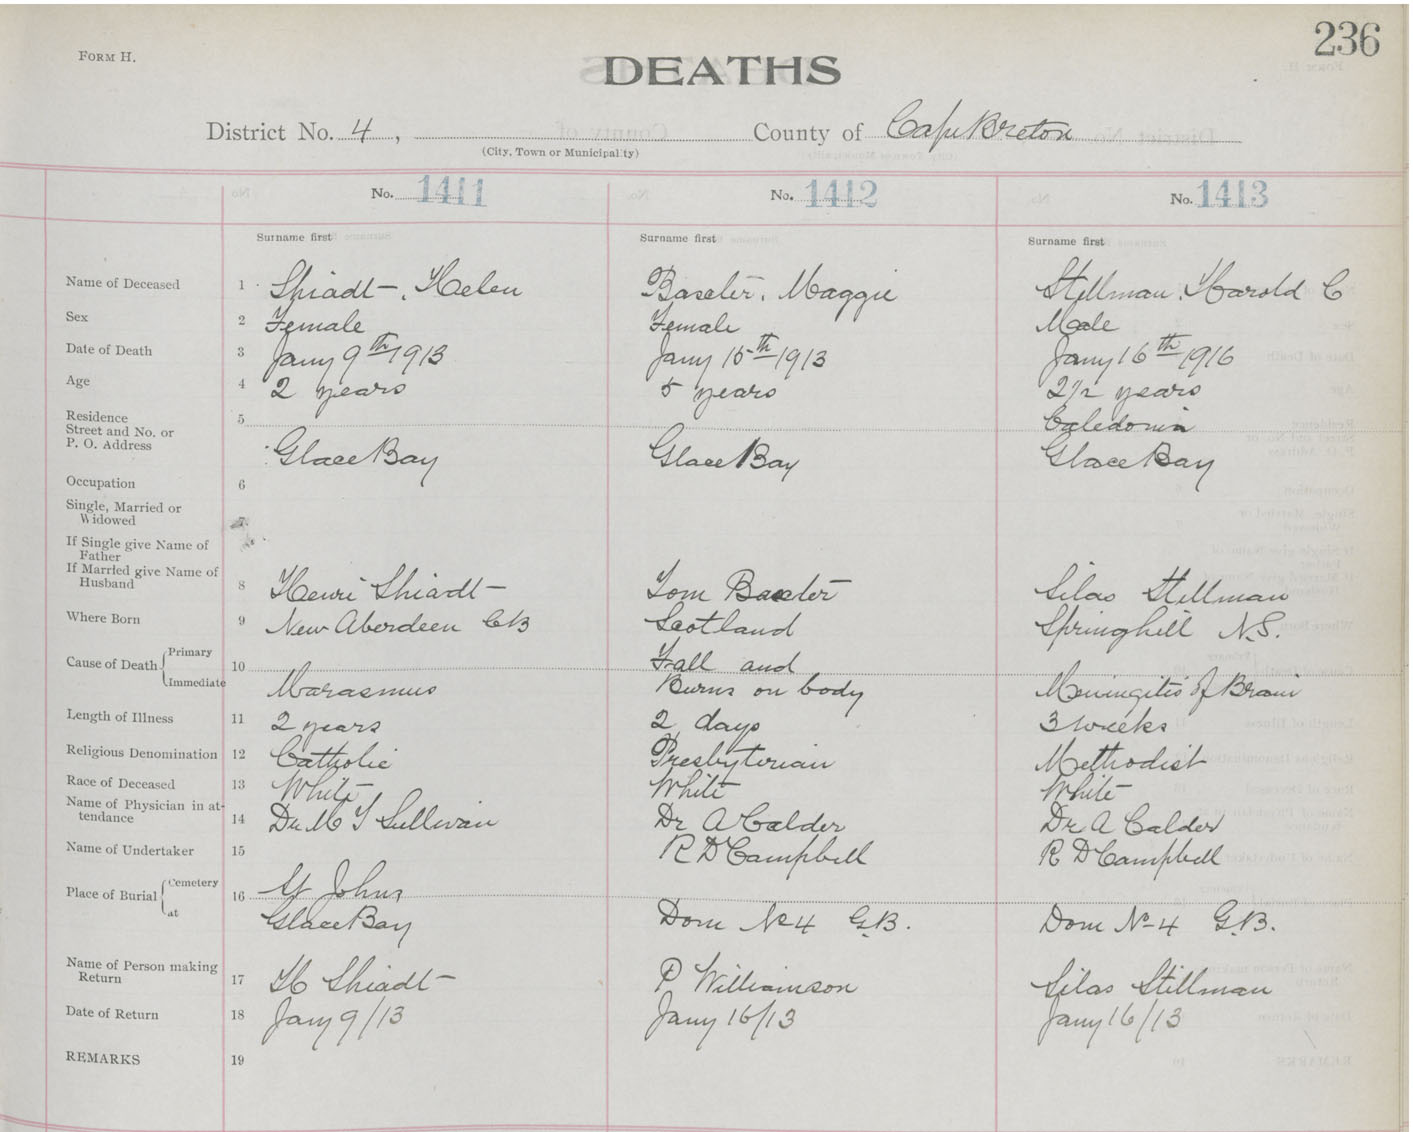 236
FORM H.
DEATHS
District No. 4, County of Cape Breton
(City, Town or Municipality)
No. 1411 No. 1412 No. 1413
Surname first Surname first Surname first
Name of Deceased 1 Shiadt, Helen Baxter, Maggie Stillman, Harold C
Sex 2 Female Female Male
Date of Death 3 Jany 9th 1913 Jany 15th 1913 Jany 16th 1916
Age 4 2 years 5 years 2 1/2 years
Residence 5 Caledonia
Street and No. or
P. O. Address Glace Bay Glace Bay Glace Bay
Occupation 6
Single, Married or
Widowed 7
If Single give Name of
Father
If Married give Name of
Husband 8 Henri Shiadt Tom Baxter Silas Stillman
Where Born 9 New Aberdeen CB Scotland Springhill N.S.
Cause of Death Primary 10 Fall and
Immediate Marasmus Burns on body Meningitis of Brain
Length of Illness 11 2 years 2 days 3 weeks
Religious Denomination 12 Catholic Presbyterian Methodist
Race of Deceased 13 White White White
Name of Physician in at-
tendance 14 Dr. M T Sullivan Dr A Calder Dr A Calder
Name of Undertaker 15 R D Campbell R D Campbell
Place of Burial Cemetery 16 St Johns
at Glace Bay Dom No 4 G.B. Dom No 4 G.B.
Name of Person making
Return 17 H Shiadt P Williamson Silas Stillman
Date of Return 18 Jany 9/13 Jany 16/13 Jany 16/13
REMARKS 19